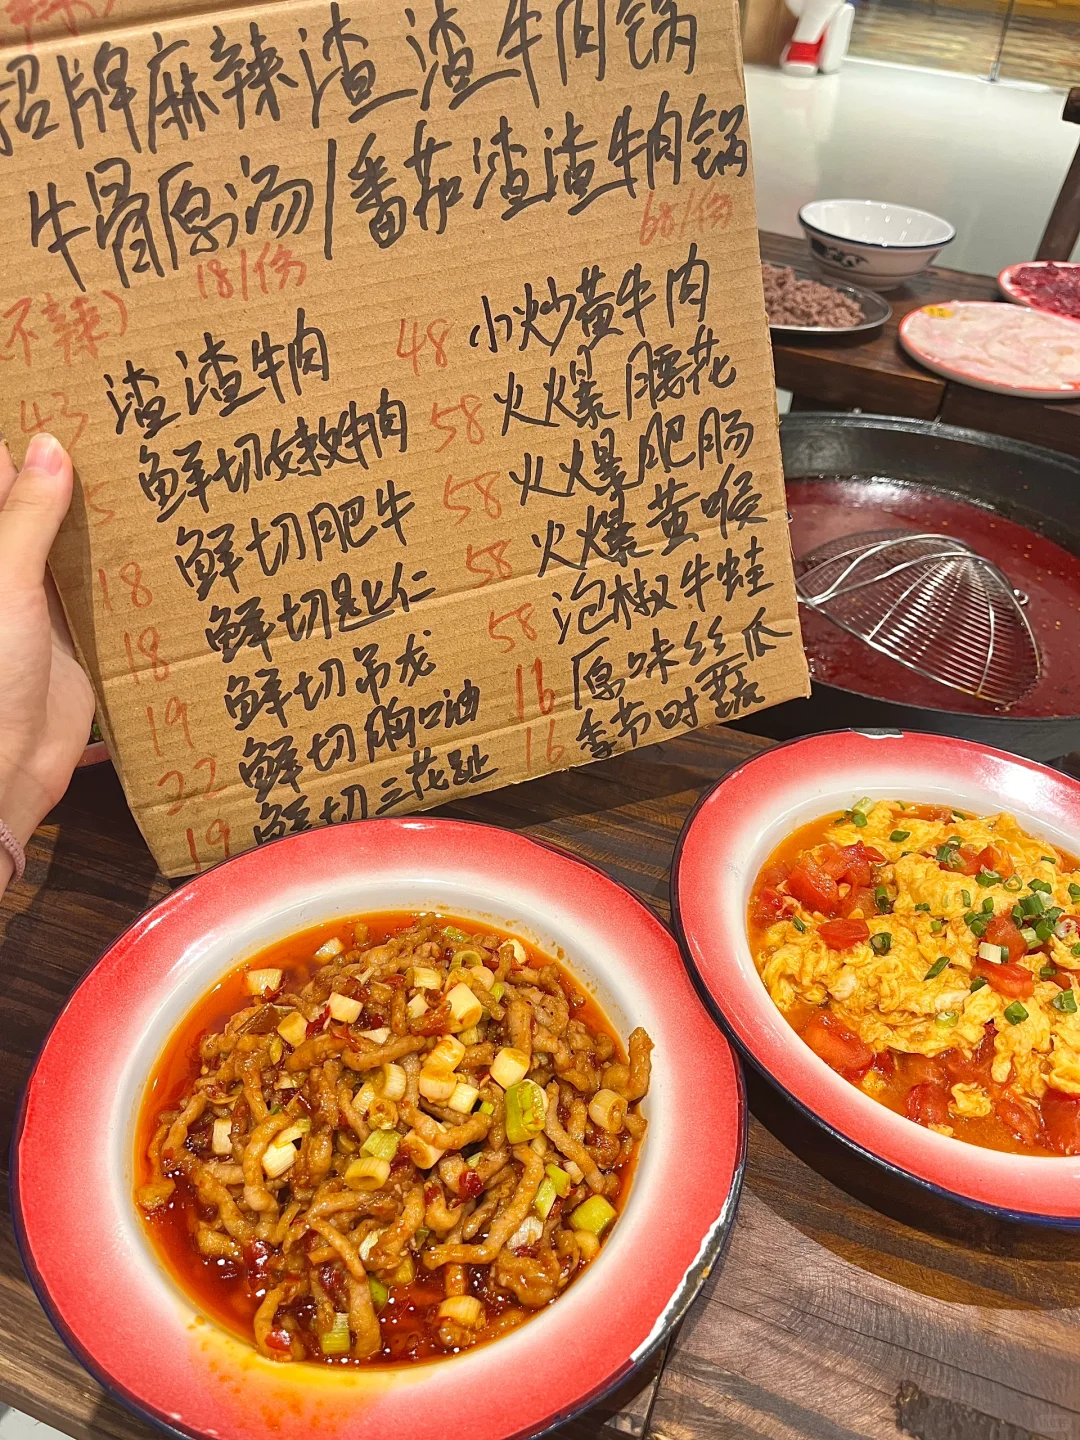 招牌麻辣渣渣牛肉锅
牛骨原汤/番茄渣渣牛肉锅
68/份
(不辣)
18/份
渣渣牛肉
鲜切嫩牛肉
鲜切肥牛
鲜切匙仁
鲜切吊龙
鲜切胸口油
鲜切三花趾
43
5
18
18
19
22
19
48 小炒黄牛肉
58 火爆腰花
58 火爆肥肠
58 火爆黄喉
58 泡椒牛蛙
16 原味丝瓜
16 季节时蔬